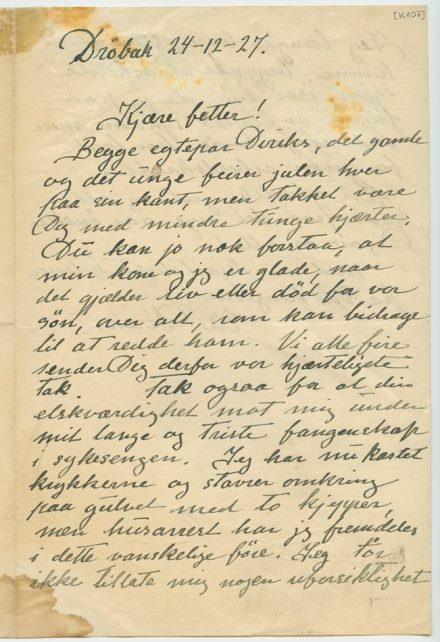 [K107]
Drøbak 24-12-27.
Kjære fetter!
Begge egtepar Diriks, det gamle
og det unge feirer julen hver
paa sin kant, men takket være
Dig med mindre tunge hjerter.
Du kan jo nok forstaa, at
min kone og jeg er glade, naar
det gjelder liv eller død for vor
søn, over alt, som kan bidrage
til at redde ham. Vi alle fire
sender Dig derfor vor hjerteligste
tak. Tak ogsaa for at din
elskværdighet mot mig under
mit lange og triste fangenskap
i sykesengen. Jeg har nu kastet
krykkerne og stavrer omkring
paa gulvet med to kjepper,
men husarrest har jeg fremdeles
i dette vanskelige føre. Jeg tør
ikke tillate mig nogen uforsiktighet